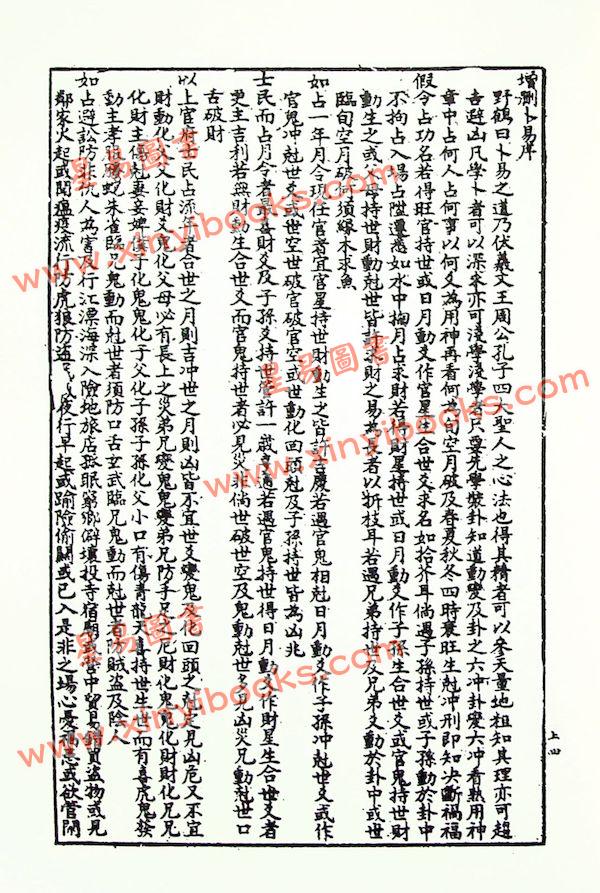 增刪卜易序
野鶴曰卜易之道乃伏羲文王周公孔子四大聖人之心法也得其精者可以參天量地粗知其理亦可趨
吉避凶凡學卜者可以深求亦可淺學淺學者只要先學裝卦知道動變及卦之六冲卦變六冲看熟用神
章中占何人占何事以何爻為用神再看何為旬空月破及春夏秋冬四時衰旺生尅冲刑即知決斷禍福
假令占功名若得旺官持世或日月動爻作官星生合世爻求名如拾芥耳倘遇子孫持世或子孫動於卦中
不拘占入場占陞遷悉如水中掬月占求財若得財星持世或日月動爻作子孫生合世爻或官鬼持世財
動生之或父母持世財動尅世皆許求財之易為長者以折枝耳若遇兄弟持世及兄弟爻動於卦中或世
臨旬空月破何須緣木求魚
如占一年月令現任官者宜官星持世財動生之皆許吉慶若遇官鬼相尅日月動爻作子孫冲尅世爻或作
官鬼冲尅世爻或世空世破官破官空或世動化回頭尅及子孫持世皆為凶兆
士民而占月令者最喜財爻及子孫爻持世管許一歲亨通若遇官鬼持世得日月動爻作財星生合世爻者
更主吉利若無財動生合世爻而官鬼持世者必見災非倘世破世空及鬼動尅世多見凶災兄動尅世口
舌破財
以上官府士民占流年者合世之月則吉冲世之月則凶皆不宜世爻變鬼及化回頭之尅定見凶危又不宜
財動化父父化財爻鬼化父母必有長上之災弟兄變鬼鬼變弟兄防手足之厄財化鬼鬼化財財化兄兄
化財主傷尅妻妾婢僕子化鬼鬼化子父化子孫子孫化父小口有傷青龍天喜持世生世而有喜虎鬼發
動主孝服螣蛇朱雀臨兄鬼動而尅世者須防口舌玄武臨兄鬼動而尅世者防賊盜及陰人
如占避訟防非仇人為害及行江漂海深入險地旅店孤眠窮鄉僻壤投寺宿廟或營中貿易錯買盜物或見
鄰家火起或聞瘟疫流行防虎狼防盜賊夜行早起或踰險偷關或已入是非之場心憂禍患或欲管閒
上四
星易圖書
www.xinyibooks.com
星易圖書
www.xinyibooks.com
星易圖書
www.xinyibooks.com